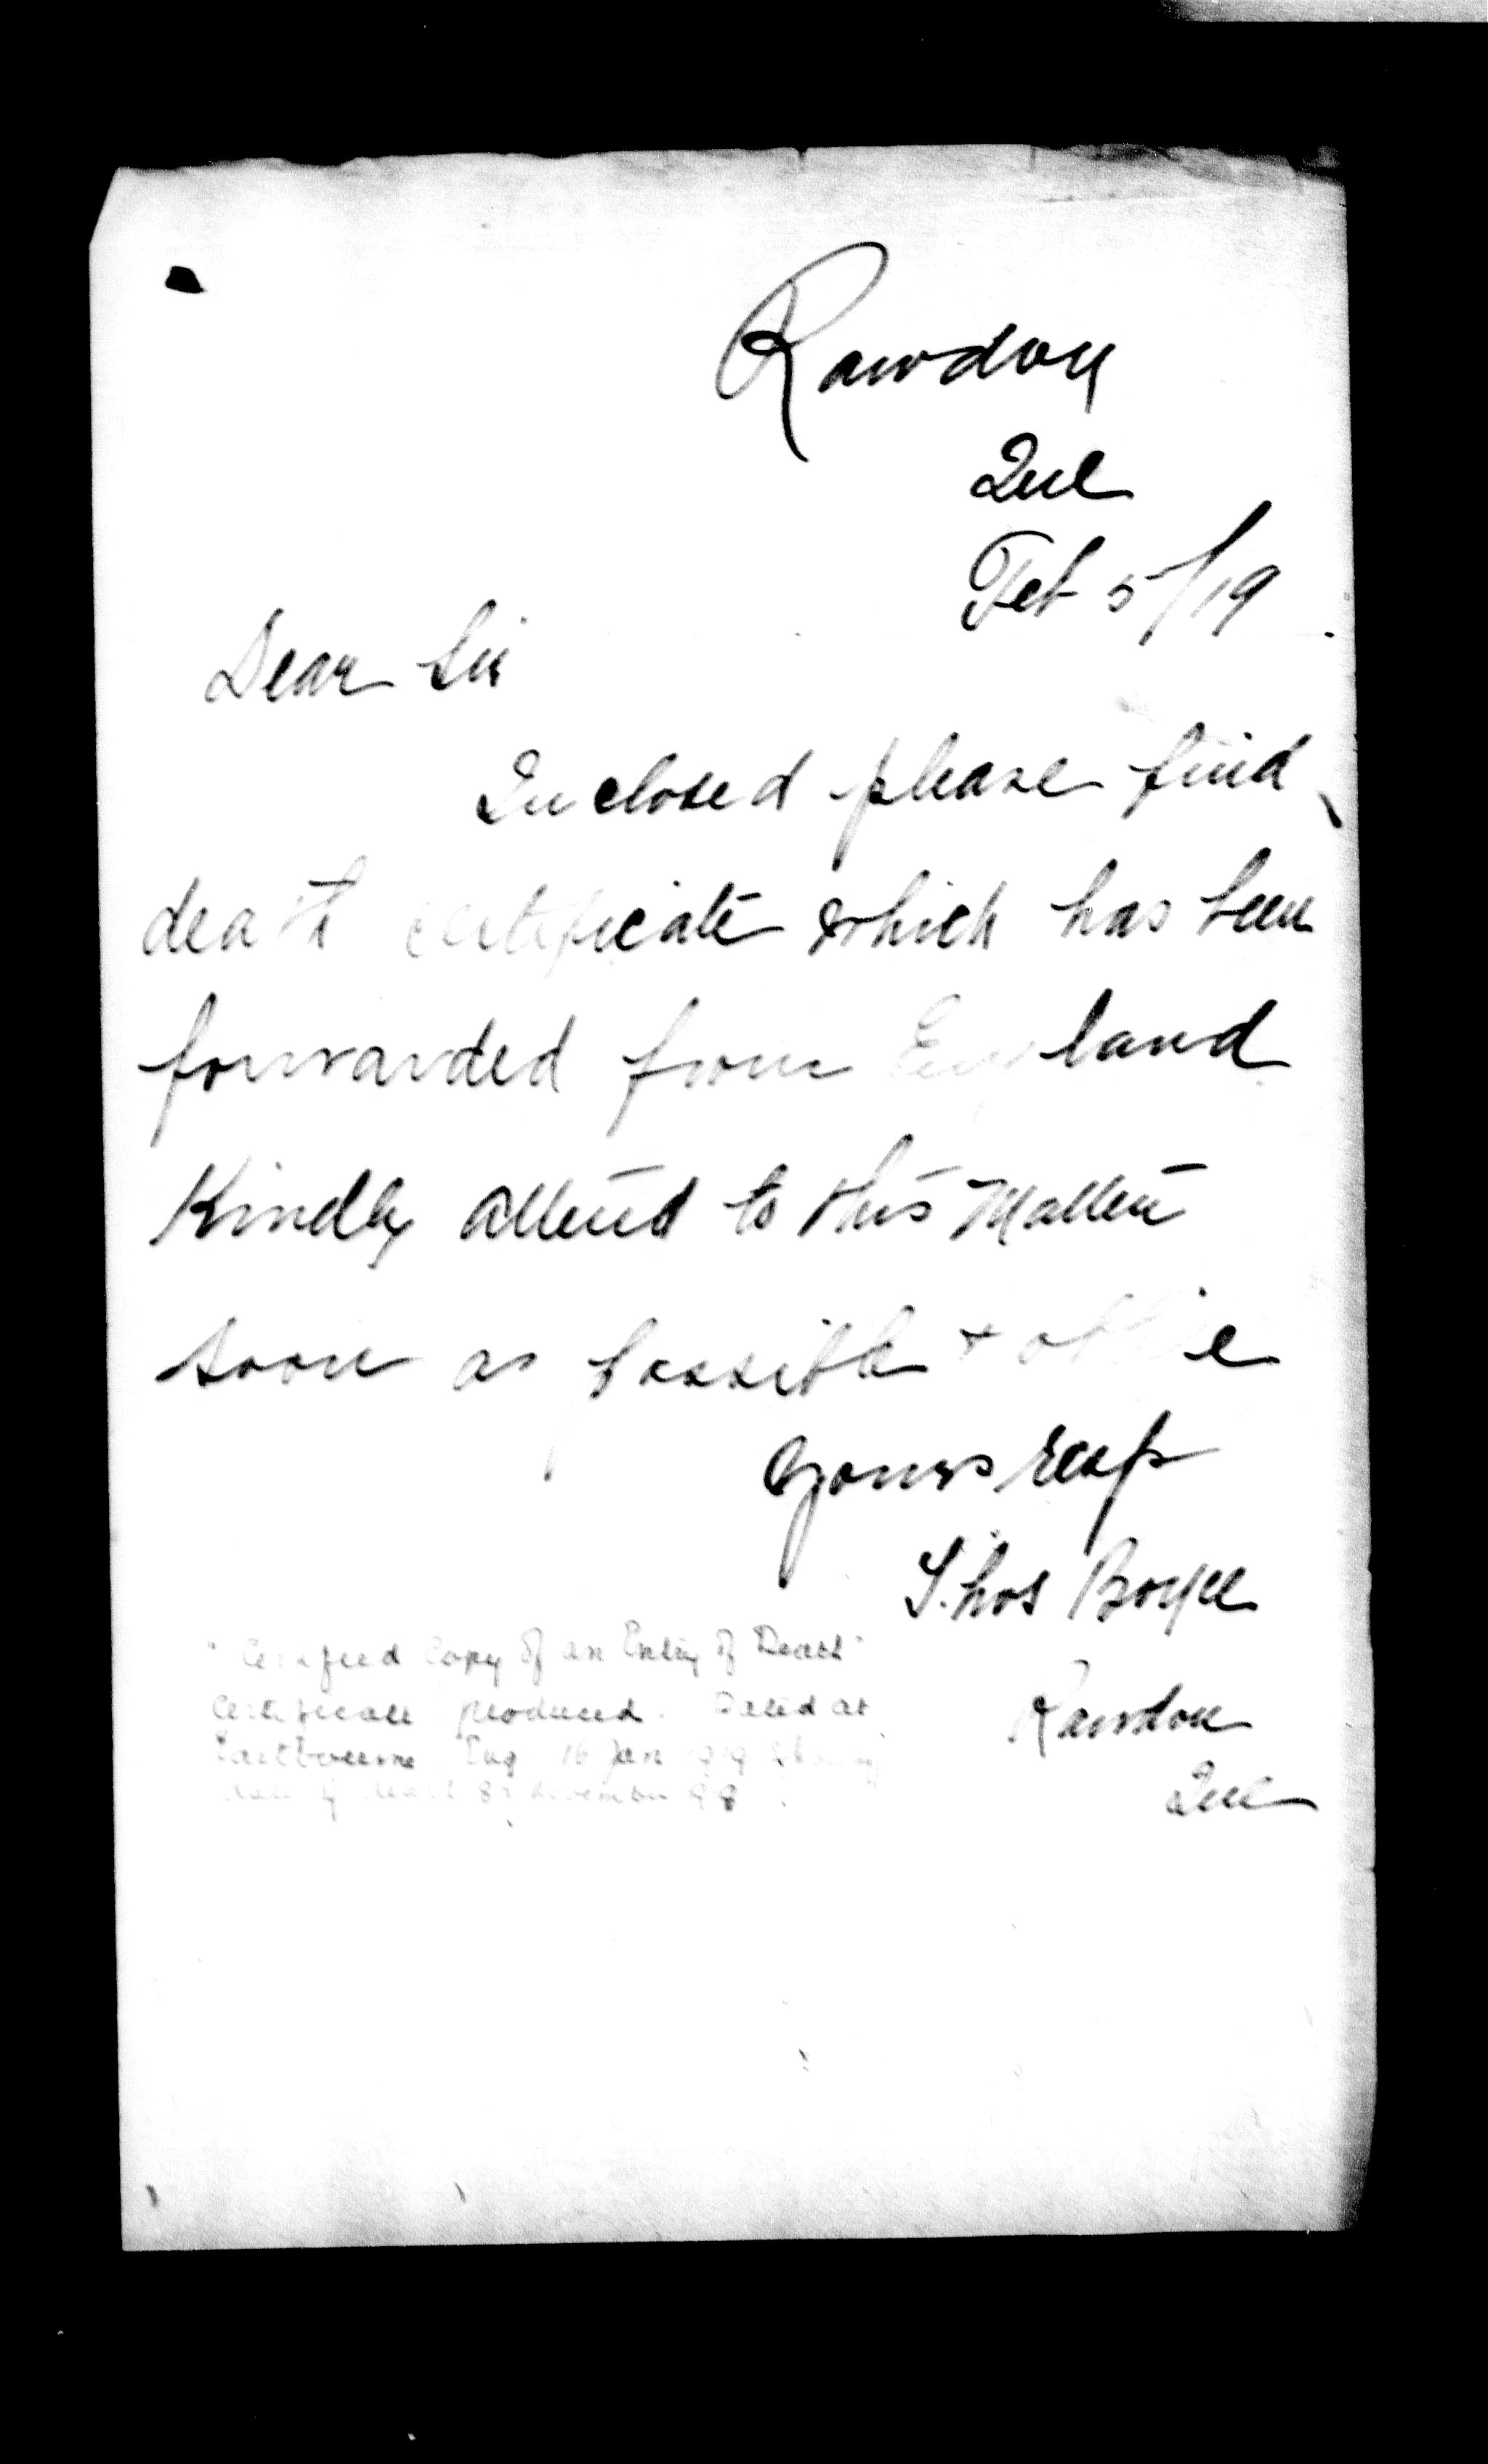 Rawdon
Que
Feb 5/19
Dear Sir
Inclosed please find
death certificate which has been
forwarded from England
Kindly attend to this Matter
soon as possible & oblige
Yours resp
Thos Boyce
Rawdon
Que
"Certified Copy of an Entry of Death"
Certificate produced. Dated at
Eastbourne Eng 16 Jan 1919 showing
date of death 8th November